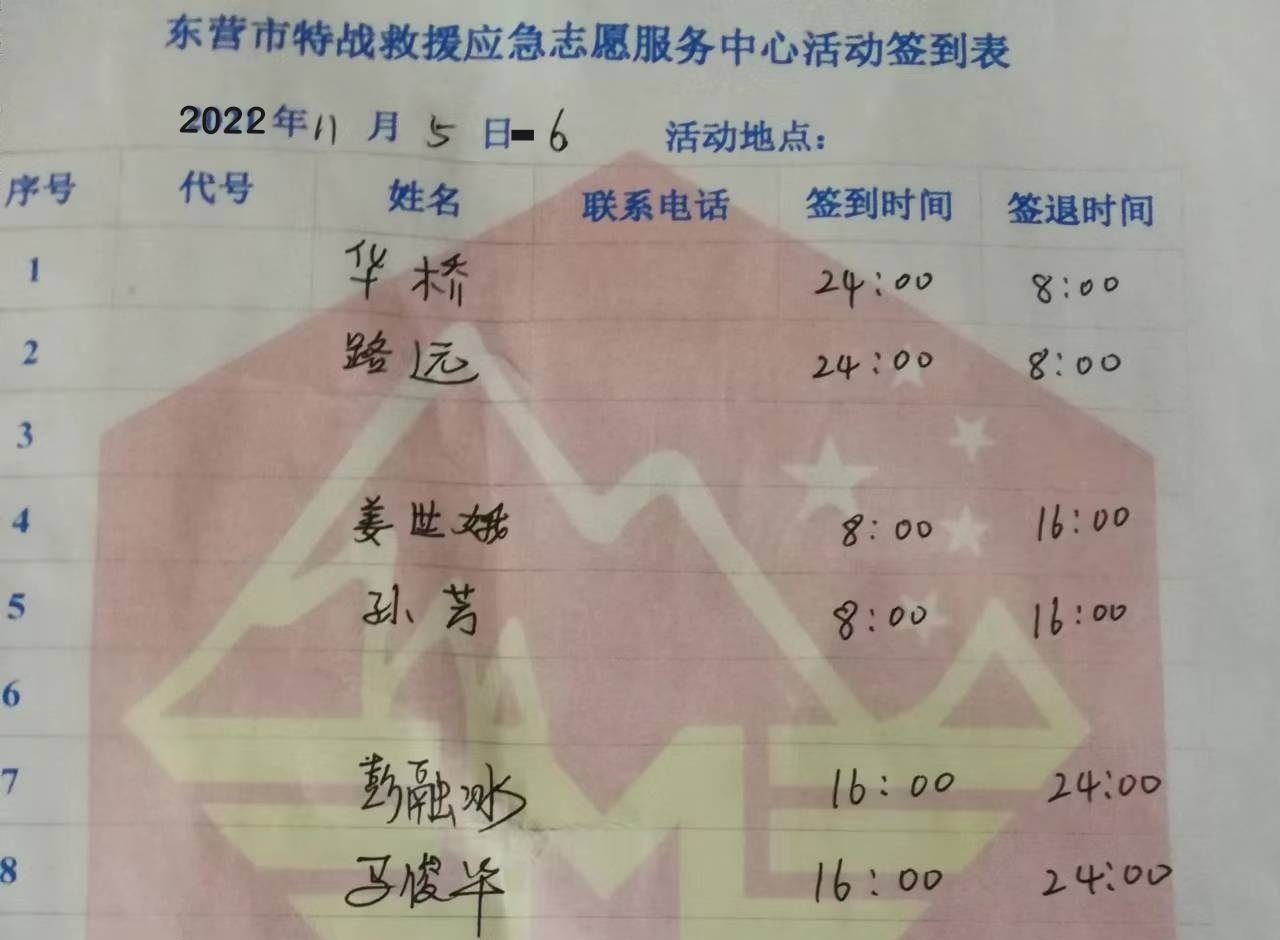 东营市特战救援应急志愿服务中心活动签到表
2022年11月5日-6 活动地点：
序号 代号 姓名 联系电话 签到时间 签退时间
1 华桥 24:00 8:00
2 路远 24:00 8:00
3
4 姜世娥 8:00 16:00
5 孙芳 8:00 16:00
6
7 彭融冰 16:00 24:00
8 马俊华 16:00 24:00